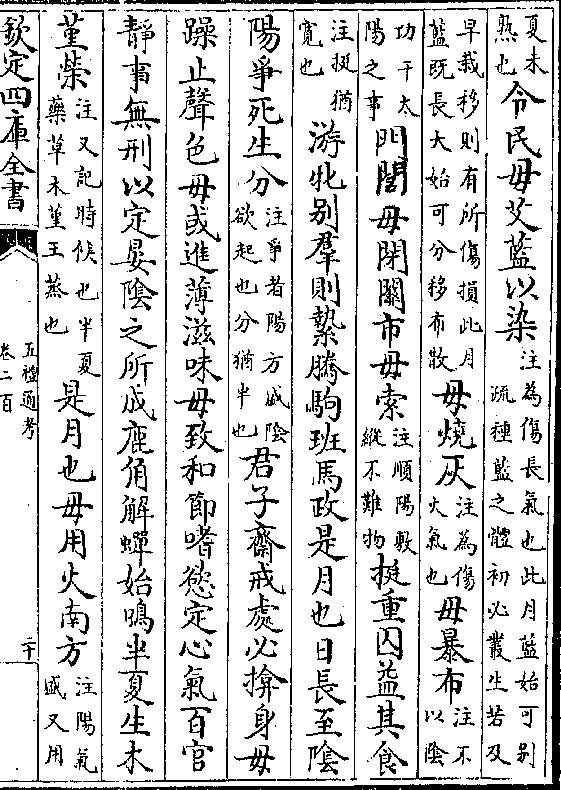 夏未
熟也令民毋艾藍以染注為傷長氣也此月藍始可別
疏種藍之體初必叢生若及
早栽移則有所傷損此月
藍既長大始可分移布散毋燒灰注為傷
火氣也毋暴布注不
以陰
功干太
陽之事門閭毋閉關市毋索注順陽敷
縱不難物挺重囚益其食
注挺猶
寛也游牝别羣則縶騰駒班馬政是月也日長至陰
陽爭死生分注爭者陽方盛陰
欲起也分猶半也君子齋戒處必揜身毋
躁止聲色毋或進薄滋味毋致和節嗜慾定心氣百官
靜事無刑以定晏陰之所成鹿角解蟬始鳴半夏生木
堇榮注又記時候也半夏
藥草木堇王蒸也是月也毋用火南方注陽氣
盛又用
欽定四庫全書
五禮通考
卷二百
二十